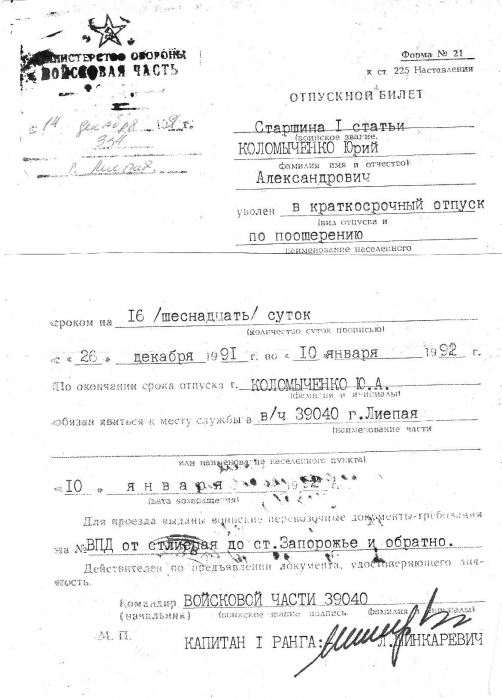 МИНИСТЕРСТВО ОБОРОНЫ
ВОЙСКОВАЯ ЧАСТЬ
Форма № 21
к ст. 225 Наставления
ОТПУСКНОЙ БИЛЕТ
« 14 декабря г.
334
г. Лиепая
Старшина I статьи
(воинское звание,
КОЛОМЫЧЕНКО Юрий
фамилия имя и отчество)
Александрович
уволен в краткосрочный отпуск
(вид отпуска и
по поощрению
наименование населенного
сроком на I6 /шеснадцать/ суток
(количество суток прописью)
с « 26 » декабря 1991 г. по « 10 января 1992 г.
По окончании срока отпуска г. КОЛОМЫЧЕНКО Ю.А.
(фамилия и инициалы)
обязан явиться к месту службы в в/ч 39040 г.Лиепая
(наименование части
или населенного пункта)
«10 » января 1992 г.
(дата возвращения)
Для проезда выданы воинские перевозочные документы-требования
на № ВПД от ст. до ст.Запорожье и обратно.
Действителен по предъявлении документа, удостоверяющего лич-
ность.
Командир ВОЙСКОВОЙ ЧАСТИ 39040
(начальник) (воинское звание подпись, фамилия и инициалы)
М. П.
КАПИТАН I РАНГА: Л.ШИНКАРЕВИЧ